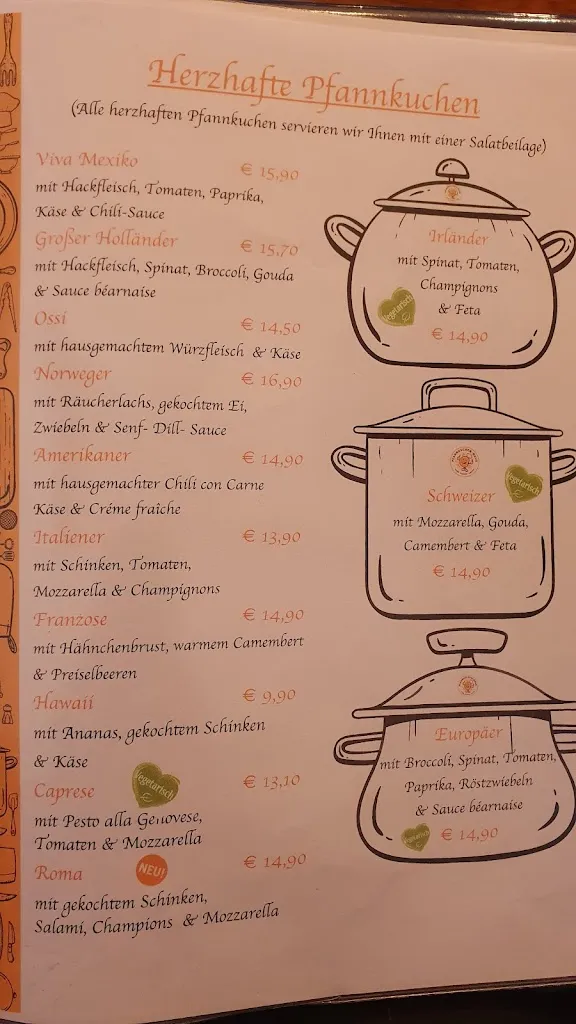 Herzhafte Pfannkuchen
(Alle herzhaften Pfannkuchen servieren wir Ihnen mit einer Salatbeilage)
Viva Mexiko € 15,90
mit Hackfleisch, Tomaten, Paprika,
Käse & Chili-Sauce
Großer Holländer € 15,70
mit Hackfleisch, Spinat, Broccoli, Gouda
& Sauce béarnaise
Ossi € 14,50
mit hausgemachtem Würzfleisch & Käse
Norweger € 16,90
mit Räucherlachs, gekochtem Ei,
Zwiebeln & Senf- Dill- Sauce
Amerikaner € 14,90
mit hausgemachter Chili con Carne
Käse & Créme fraîche
Italiener € 13,90
mit Schinken, Tomaten,
Mozzarella & Champignons
Franzose € 14,90
mit Hähnchenbrust, warmem Camembert
& Preiselbeeren
Hawaii € 9,90
mit Ananas, gekochtem Schinken
& Käse
Caprese Vegetarisch € 13,10
mit Pesto alla Genovese,
Tomaten & Mozzarella
Roma NEU! € 14,90
mit gekochtem Schinken,
Salami, Champions & Mozzarella
Irländer
mit Spinat, Tomaten,
Champignons
& Feta
Vegetarisch
€ 14,90
Vegetarisch
Schweizer
mit Mozzarella, Gouda,
Camembert & Feta
€ 14,90
Europäer
mit Broccoli, Spinat, Tomaten,
Paprika, Röstzwiebeln
& Sauce béarnaise
Vegetarisch € 14,90